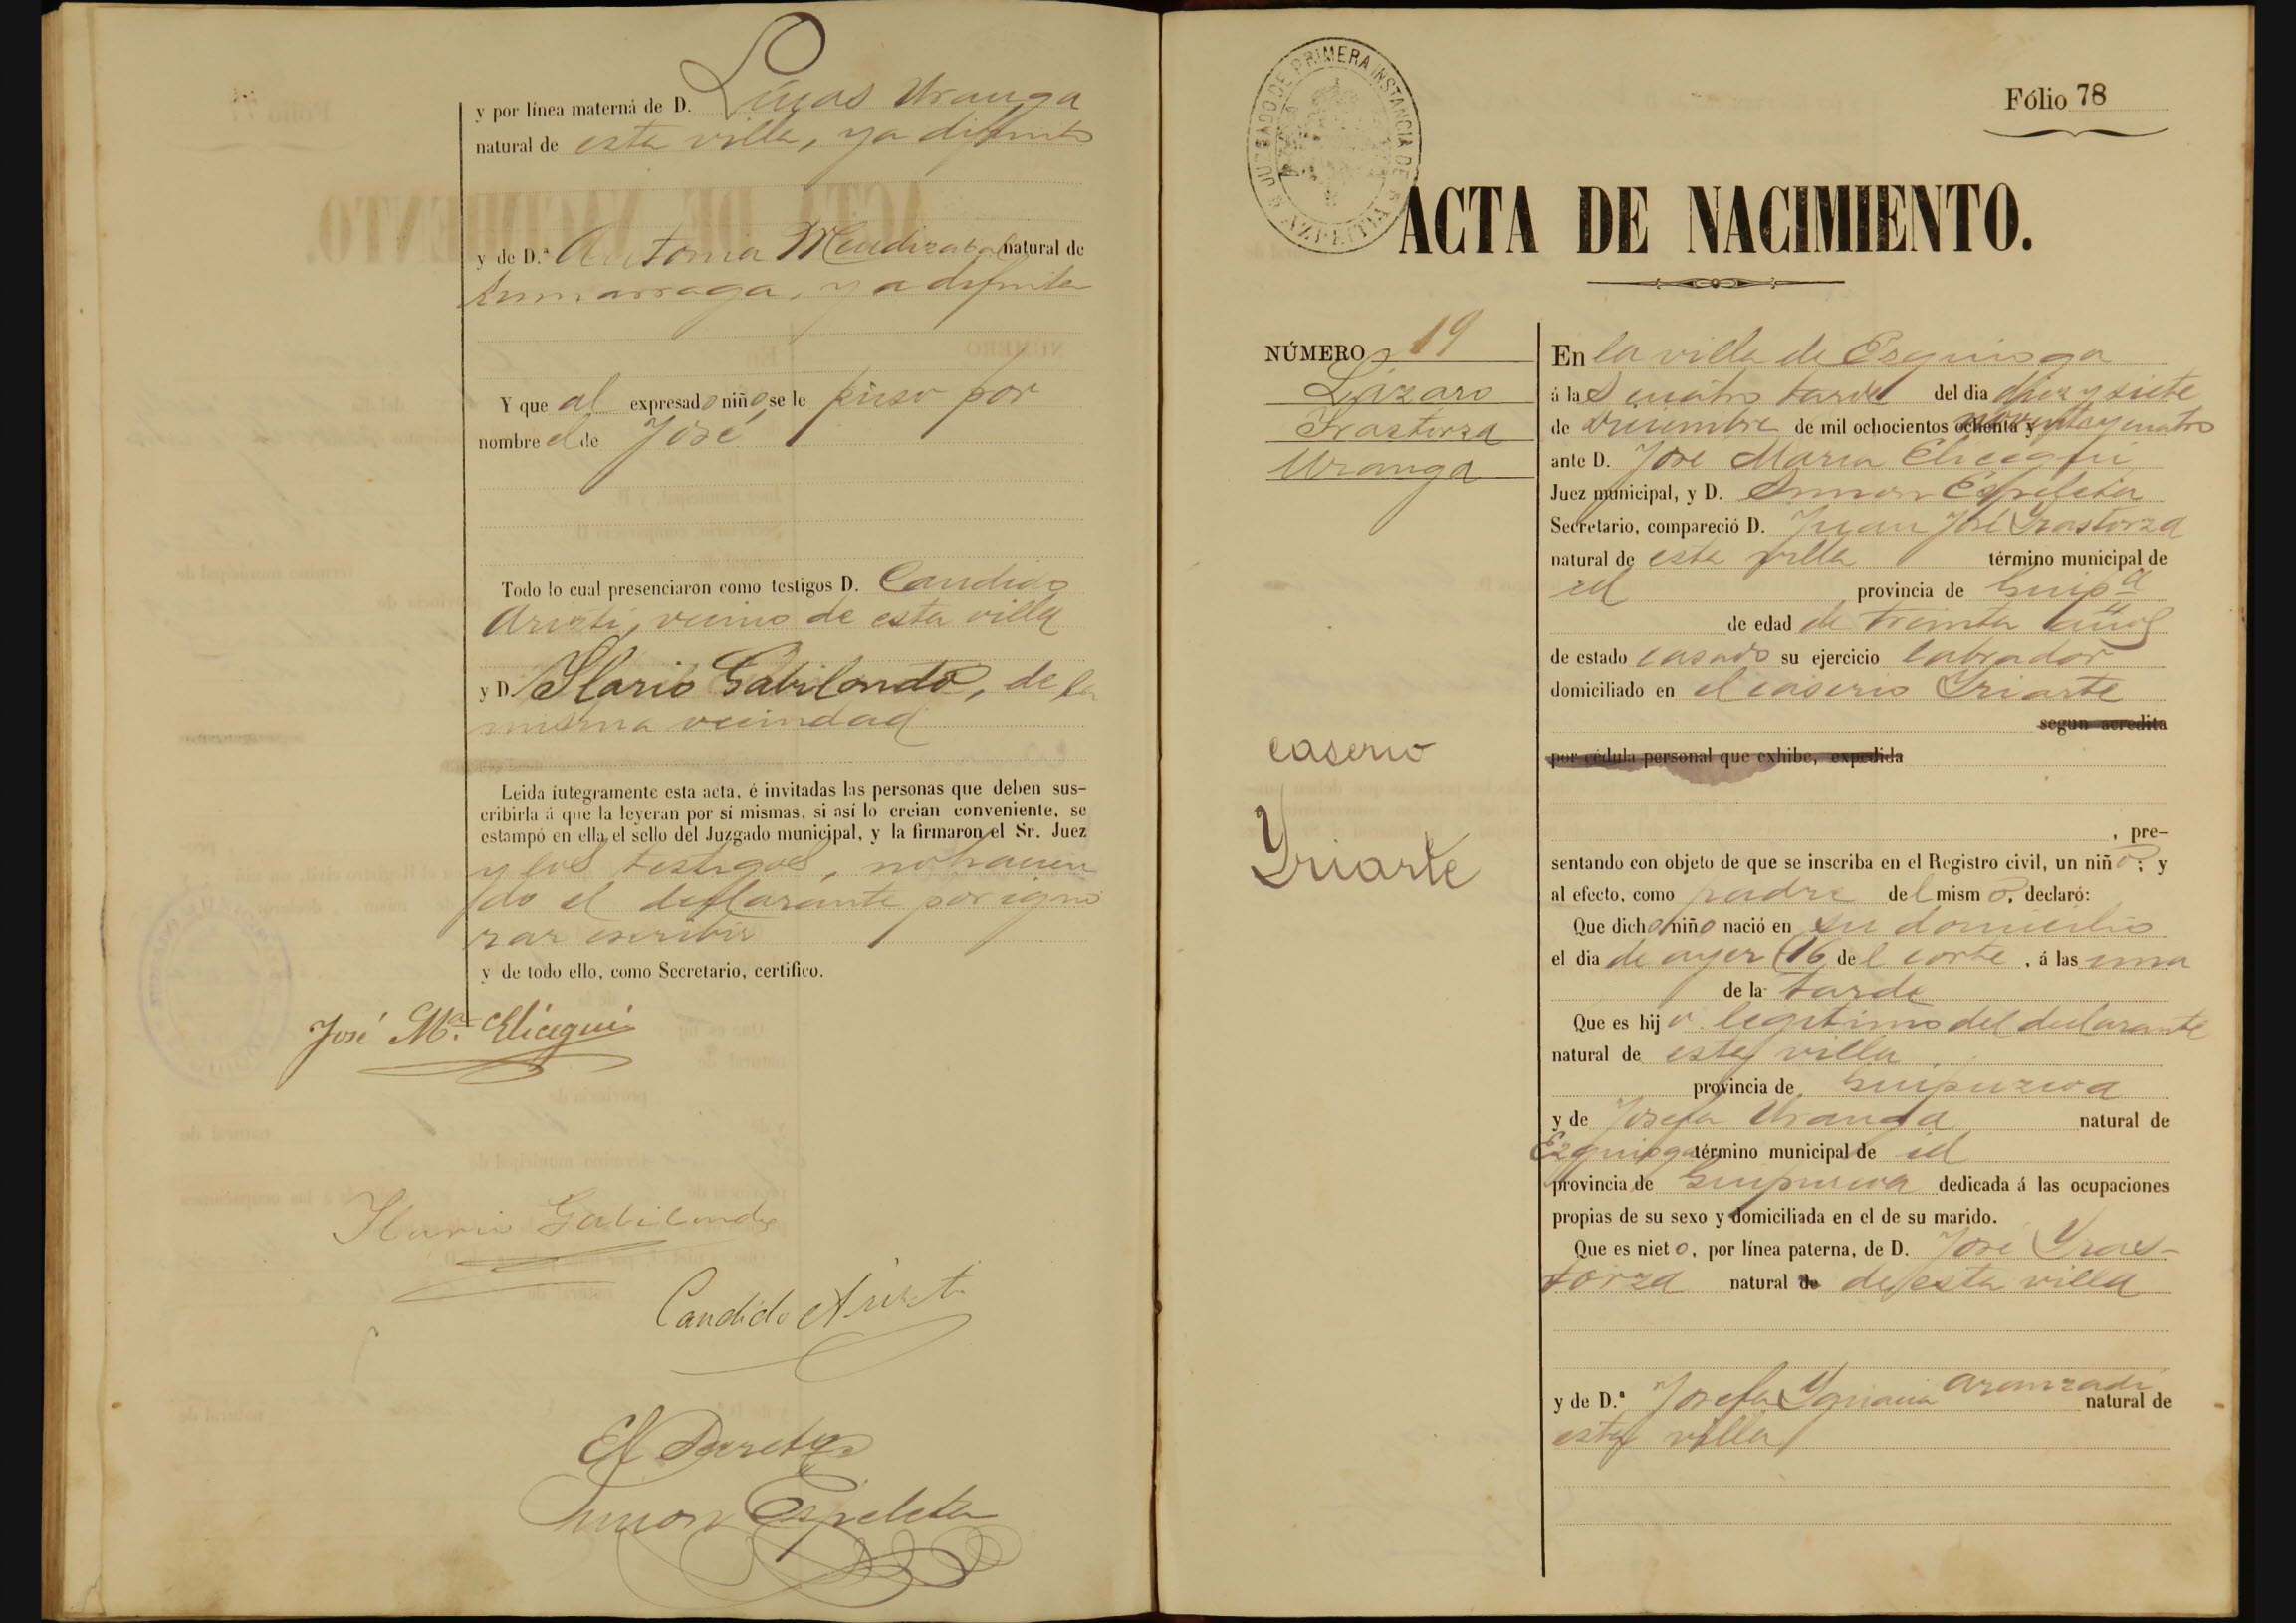 y por línea materná de D. Lucas Uranga
natural de esta villa, ya difunto
y de D.ª Antonia Mendizabal natural de
Zumarraga, ya difunta
Y que al expresado niño, se le puso por
nombre el de José
Todo lo cual presenciaron como testigos D. Candido
Arizti, vecino de esta villa
y D. Ylario Gabilondo, de la
misma vecindad
Leida íntegramente esta acta, é invitadas las personas que deben sus-
cribirla á que la leyeran por sí mismas, si así lo creian conveniente, se
estampó en ella el sello del Juzgado municipal, y la firmaron el Sr. Juez
y los testigos, no hacien
do el declarante por igno
rar escribir
y de todo ello, como Secretario, certifico.
José Mª Elicegui
Ylario Gabilondo
Candido Arizti
El Secretº
Simon Espeleta
JUZGADO DE PRIMERA INSTANCIA DE AZPEITIA
Fólio 78
ACTA DE NACIMIENTO.
NÚMERO 19
Lázaro
Yrastorza
Uranga
caserio
Yriarte
En la villa de Ezquioga
á las cuatro tarde del dia diez y siete
de Diciembre de mil ochocientos ochenta y noventa y cuatro
ante D. José Maria Elicegui
Juez municipal, y D. Simon Espeleta
Secretario, compareció D. Juan José Yrastorza
natural de esta villa término municipal de
id provincia de Guipª
de edad de treinta años
de estado casado su ejercicio labrador
domiciliado en el caserio Yriarte
segun acredita
por cédula personal que exhibe, expedida
, pre-
sentando con objeto de que se inscriba en el Registro civil, un niño; y
al efecto, como padre del mismo, declaró:
Que dicho niño nació en su domicilio
el dia de ayer (16 del corte, á las una
de la tarde
Que es hijo legitimo del declarante
natural de esta villa
provincia de Guipuzcoa
y de Josefa Uranga natural de
Ezquioga término municipal de id
provincia de Guipuzcoa dedicada á las ocupaciones
propias de su sexo y domiciliada en el de su marido.
Que es nieto, por línea paterna, de D. José Yras-
torza natural de de esta villa
y de D.ª Josefa Ygnacia Aranzadi natural de
esta villa